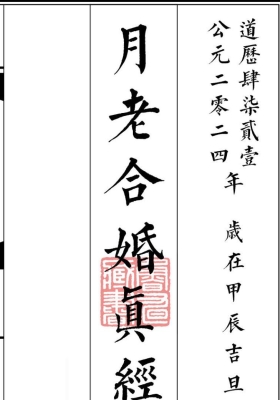 道歷肆柒貳壹
公元二零二四年 歲在甲辰吉旦
月老合婚眞經